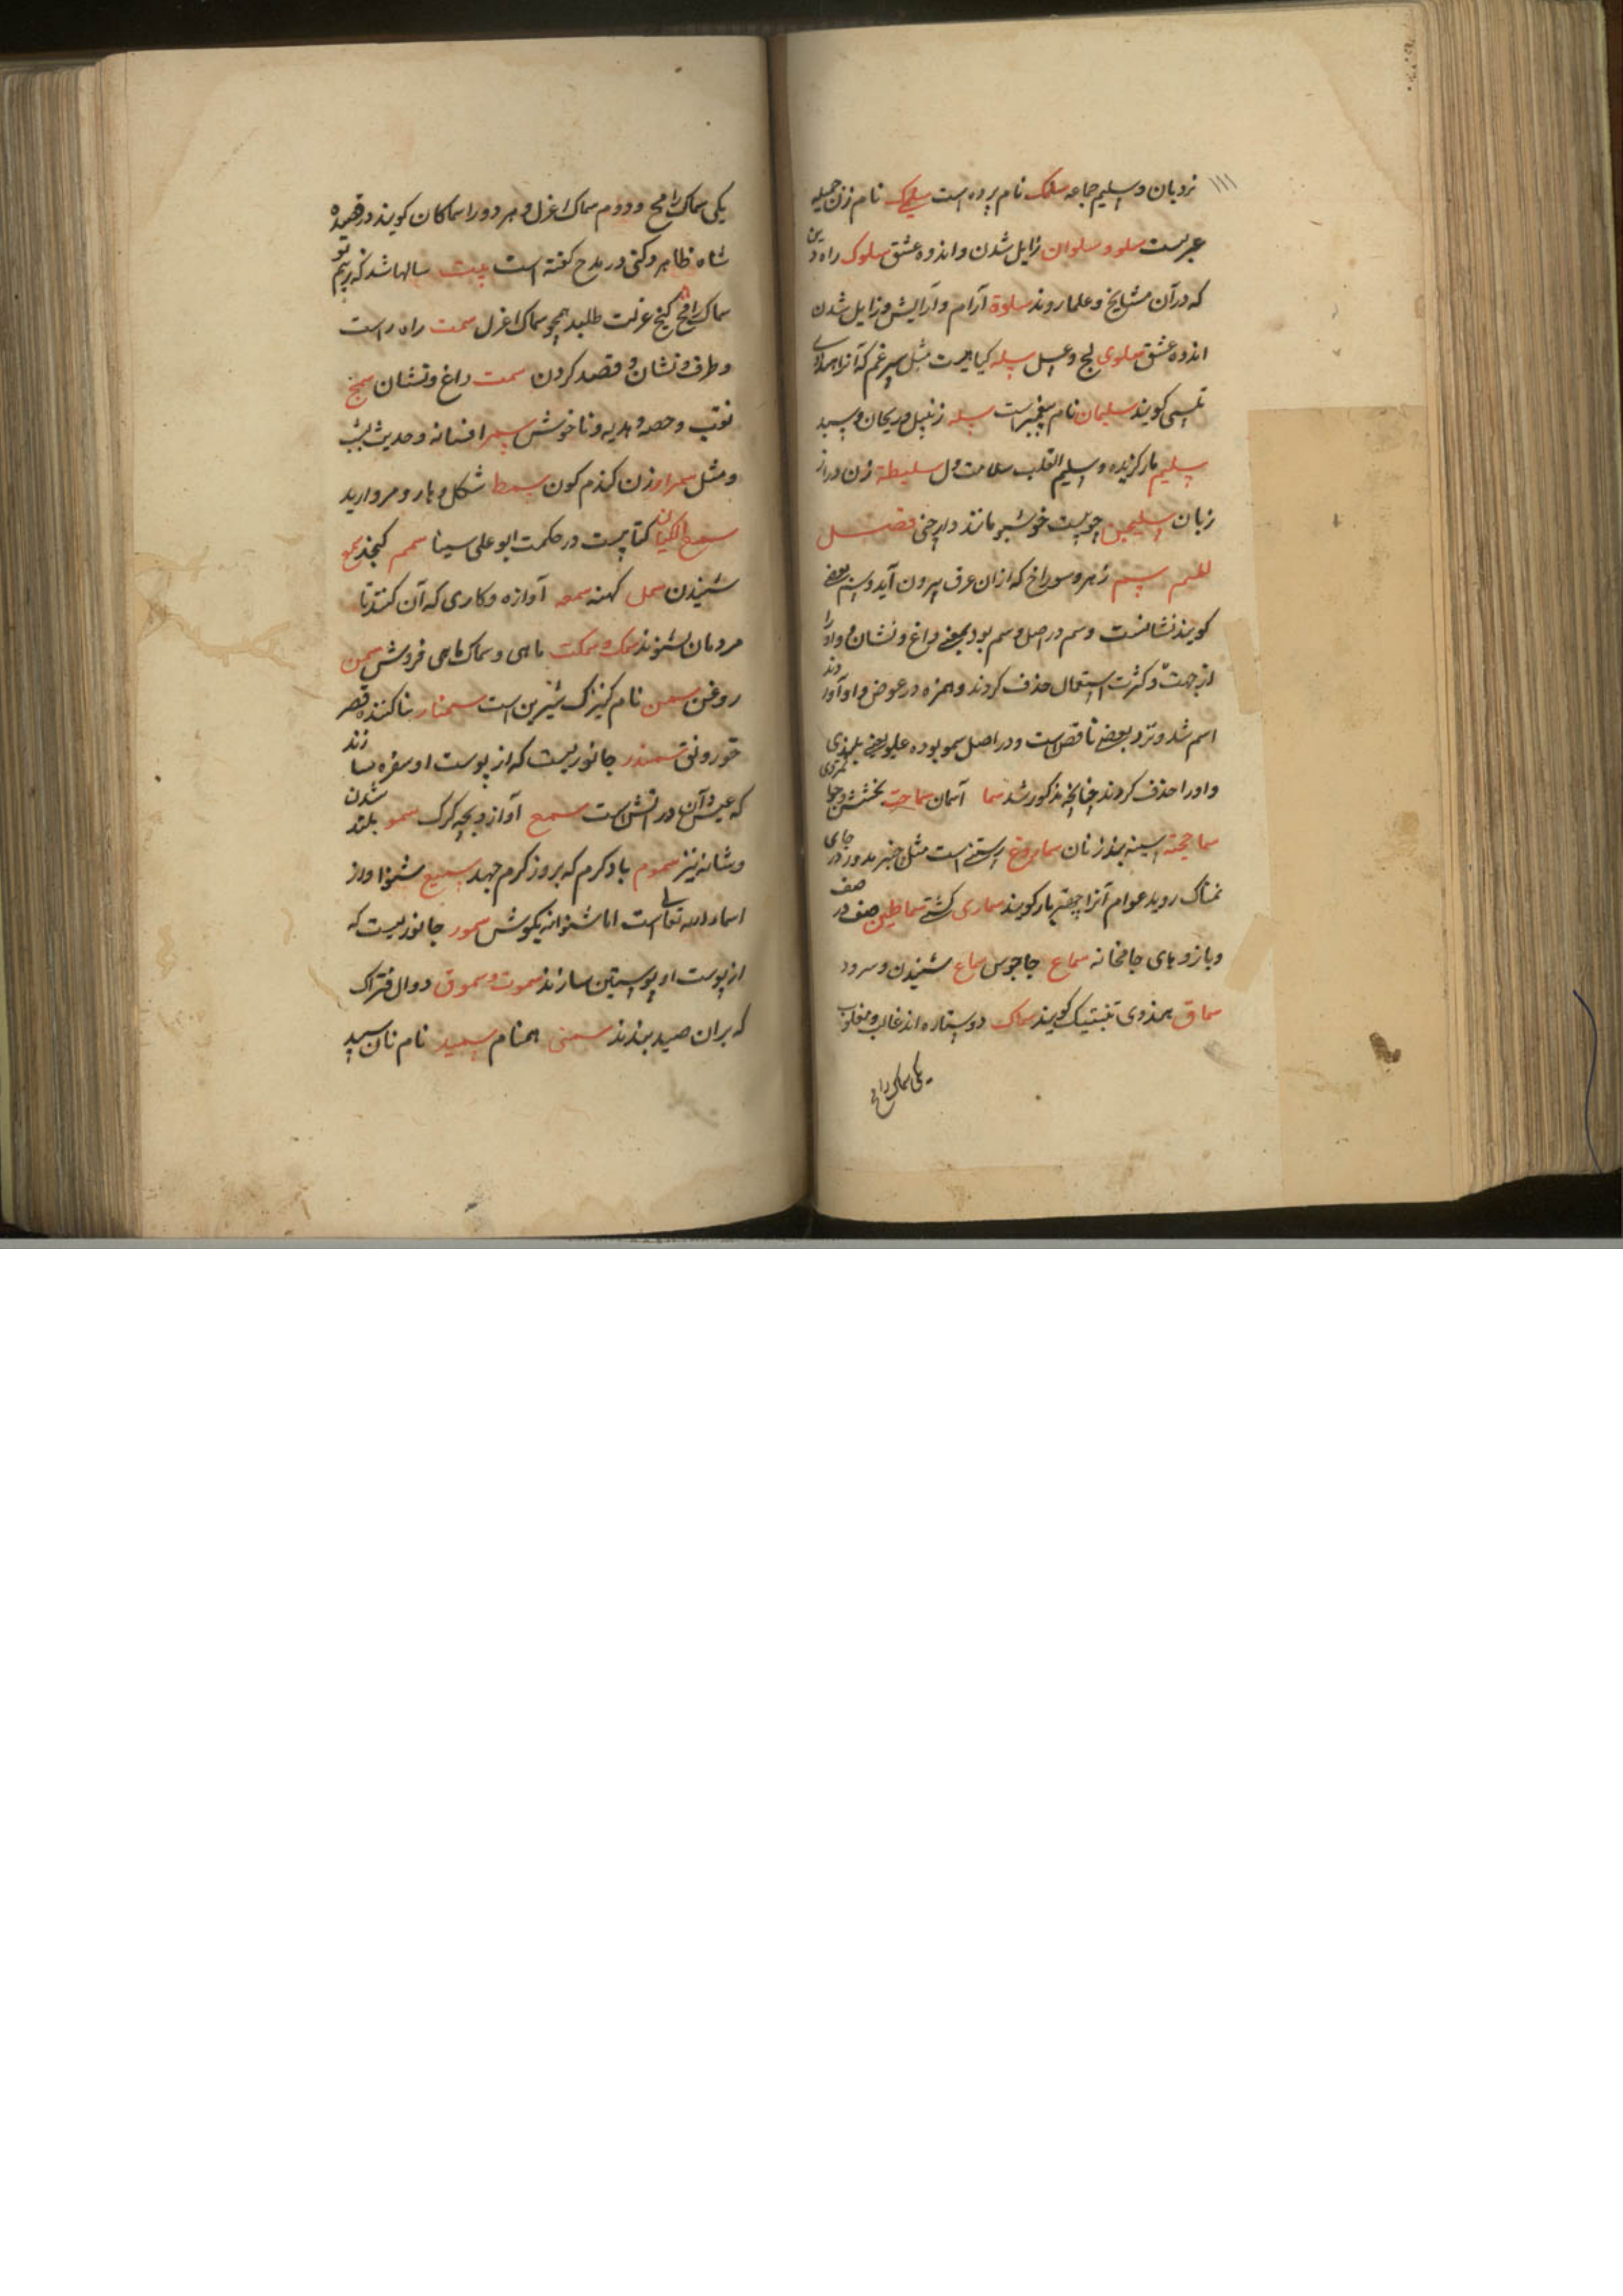 ۱۱۱
نردبان و سلیم جامه سلمک نام پرده است سلیمک نام زن جمیله
عربست سلو و سلوان زایل شدن و اندوه عشق سلوک راه دین
که در آن مشایخ و علما روند سلوة آرام و آرایش و زایل شدن
اندوه عشق سلوی لج و عسل سله کیاهیست مثل سپرغم که آنرا
تلسی کویند سلیمان نام پیغمبر است سله زنبیل و ریحان و سبد
سلیم مار کزیده و سلیم القلب سلامت دل سلیطة زن دراز
زبان سلیجن چوبیست خوشبو مانند دارچنی فصل
للمیم سم زهر و سوراخ که از ان عرق بیرون آید و سم بعضی
کویند نشانست وسم در اصل وسم بود بمعنی داغ و نشان و واو را
از جهت کثرت استعمال حذف کردند و همزه در عوض واو آوردند
اسم شد و نزد بعضی ناقص است و در اصل سمو بوده علو یعنی بلندی
واو را حذف کردند چنانچه مذکور شد سما آسمان سماحت بخشش و جوانمردی
سماخچه سینه بند زنان سماروغ رستنی است مثل چتر مدور در جای
نمناک روید عوام آنرا چتر مار کویند سماری کشتی سماطین صف در صف
و بازوهای جامخانه سماع جاجوس سماع شنیدن و سرود
سماق بهندوی تنبتیک کویند سماک دو ستاره اند غالب و مغلوب
یکی سماک رامح
یکی سماک رامح و دوم سماک اعزل و هر دو را سماکان کویند در قصیده
شاه ظاهر دکنی در مدح کفته است بیت سالها شد که ز بیم تو
سماک رامح کنج عزلت طلبد همچو سماک اعزل سمت راه راست
و طرف و نشان و قصد کردن سمت داغ و نشان سمج
نقب و حصه و هدیه و ناخوش سمر افسانه و حدیث شب
و مثل سمرا زن کندم کون سمط شکل و هار و مروارید
سمع الکیان کتابیست در حکمت ابو علی سینا سمسم کنجد سمع
شنیدن سمل کهنه سمعه آوازه و کاری که آن کنند تا
مردمان بشنوند سمک و سمکت ماهی و سماک ماهی فروش سمن
روغن سمن نام کنیزک شیرین است سمنار بنا کننده قصر
خورونق سمندر جانوریست که از پوست او سفره سازند
که عیش آن در آتش است سمع آواز و بچه کرک سمو بلند شدن
و شانه نیز سموم باد کرم که بروز کرم جهد سمیع شنوا و از
اسماء الله تعالی است اما شنوا نه بکوش سمور جانوریست که
از پوست او پوستین سازند سموت و سموق دوال فتراک
که بران صید بندند سمی همنام سمید نام نان سپید